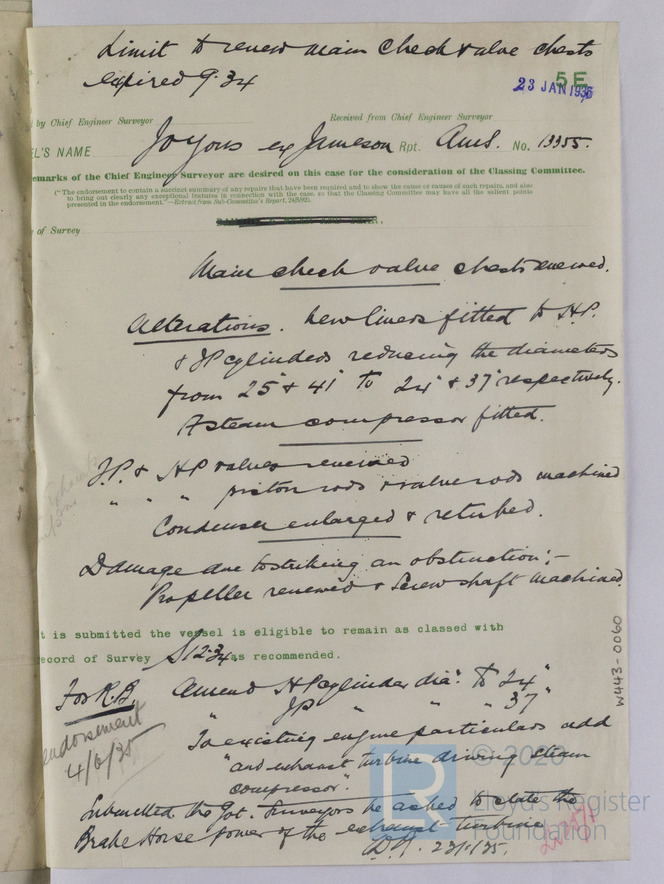 Limit to renew main check valve chests
expired 9.34
5E
23 JAN 1935
by Chief Engineer Surveyor
Received from Chief Engineer Surveyor
EL'S NAME Joyous ex Jameson Rpt. Ams. No. 13355.
emarks of the Chief Engineer Surveyor are desired on this case for the consideration of the Classing Committee.
("The endorsement to contain a succinct summary of any repairs that have been required and to show the cause or causes of such repairs, and also
to bring out clearly any exceptional features in connection with the case, so that the Classing Committee may have all the salient points
presented in the endorsement."—Extract from Sub-Committee's Report,
of Survey
Main check valve chests renewed.
Alterations. New liners fitted to H.P.
& IP cylinders reducing the diameters
from 25" & 41" to 24" & 37" respectively.
A steam compressor fitted.
I.P. & H.P valves renewed
" " " piston rods & valve rods machined
Condenser enlarged & retubed.
Damage due to striking an obstruction:-
Propeller renewed & Screwshaft machined.
t is submitted the vessel is eligible to remain as classed with
ecord of Survey S12.34 as recommended.
For R.B Amend HP cylinder dia: to 24"
" IP " " " 37"
endorsement
4/6/35
To existing engine particulars add
"and exhaust turbine driving steam
compressor".
Submitted the Got. Surveyors be asked to state the
Brake Horse Power of the exhaust turbine
23/1/35.
W443-0060
LR
© 2020
Lloyd's Register
Foundation